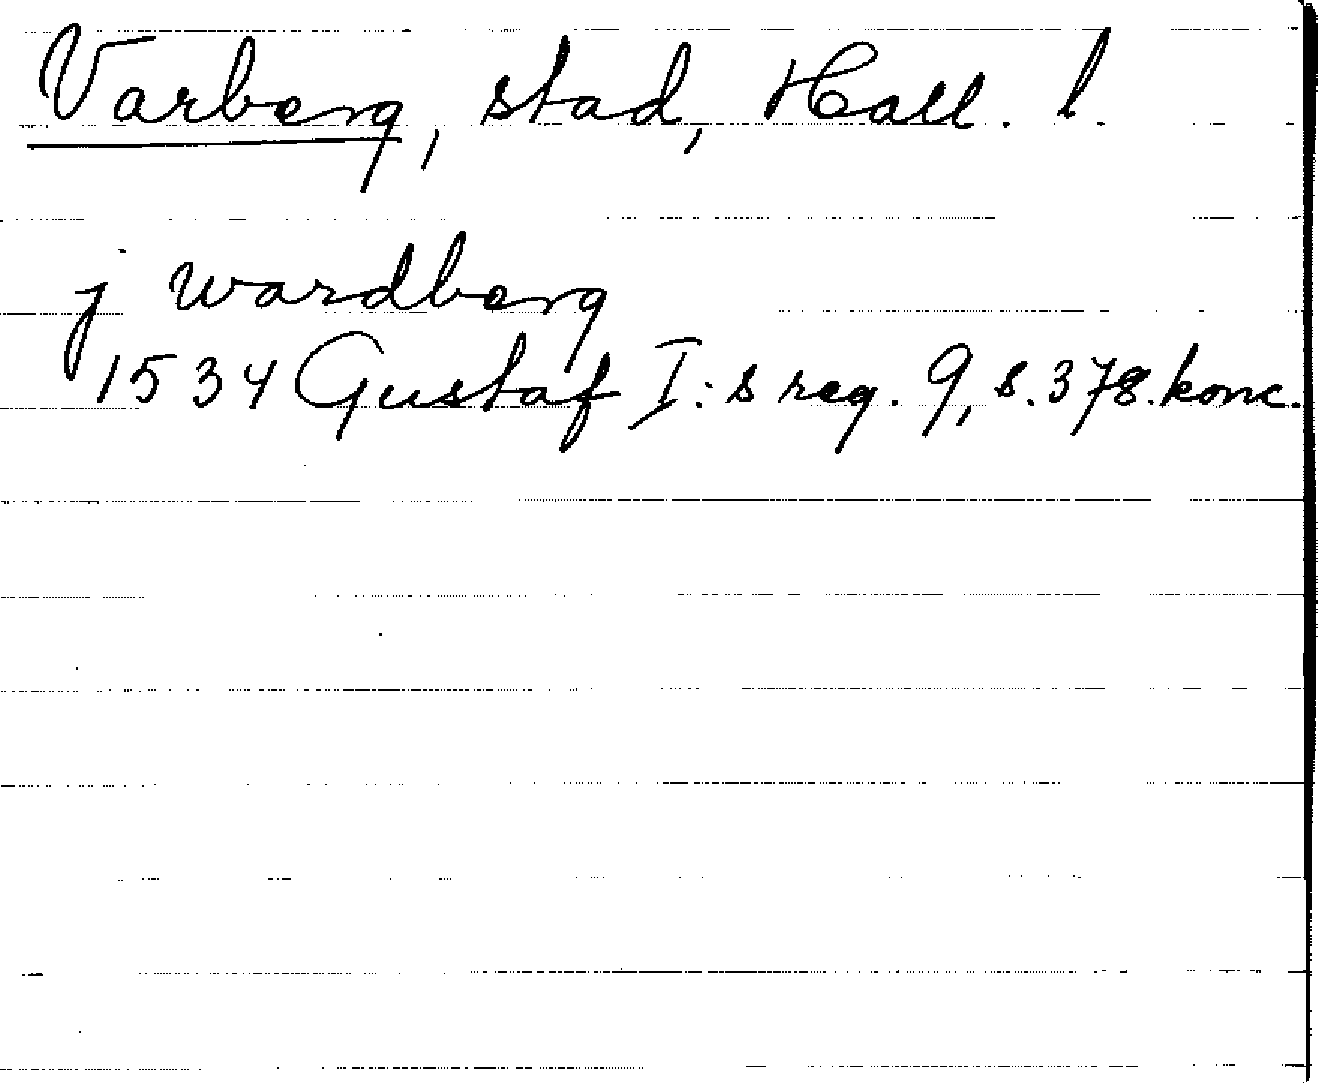 Varberg, stad, Hall. l.
j wardberg
1534 Gustaf I:s reg. 9, s. 378. konc.